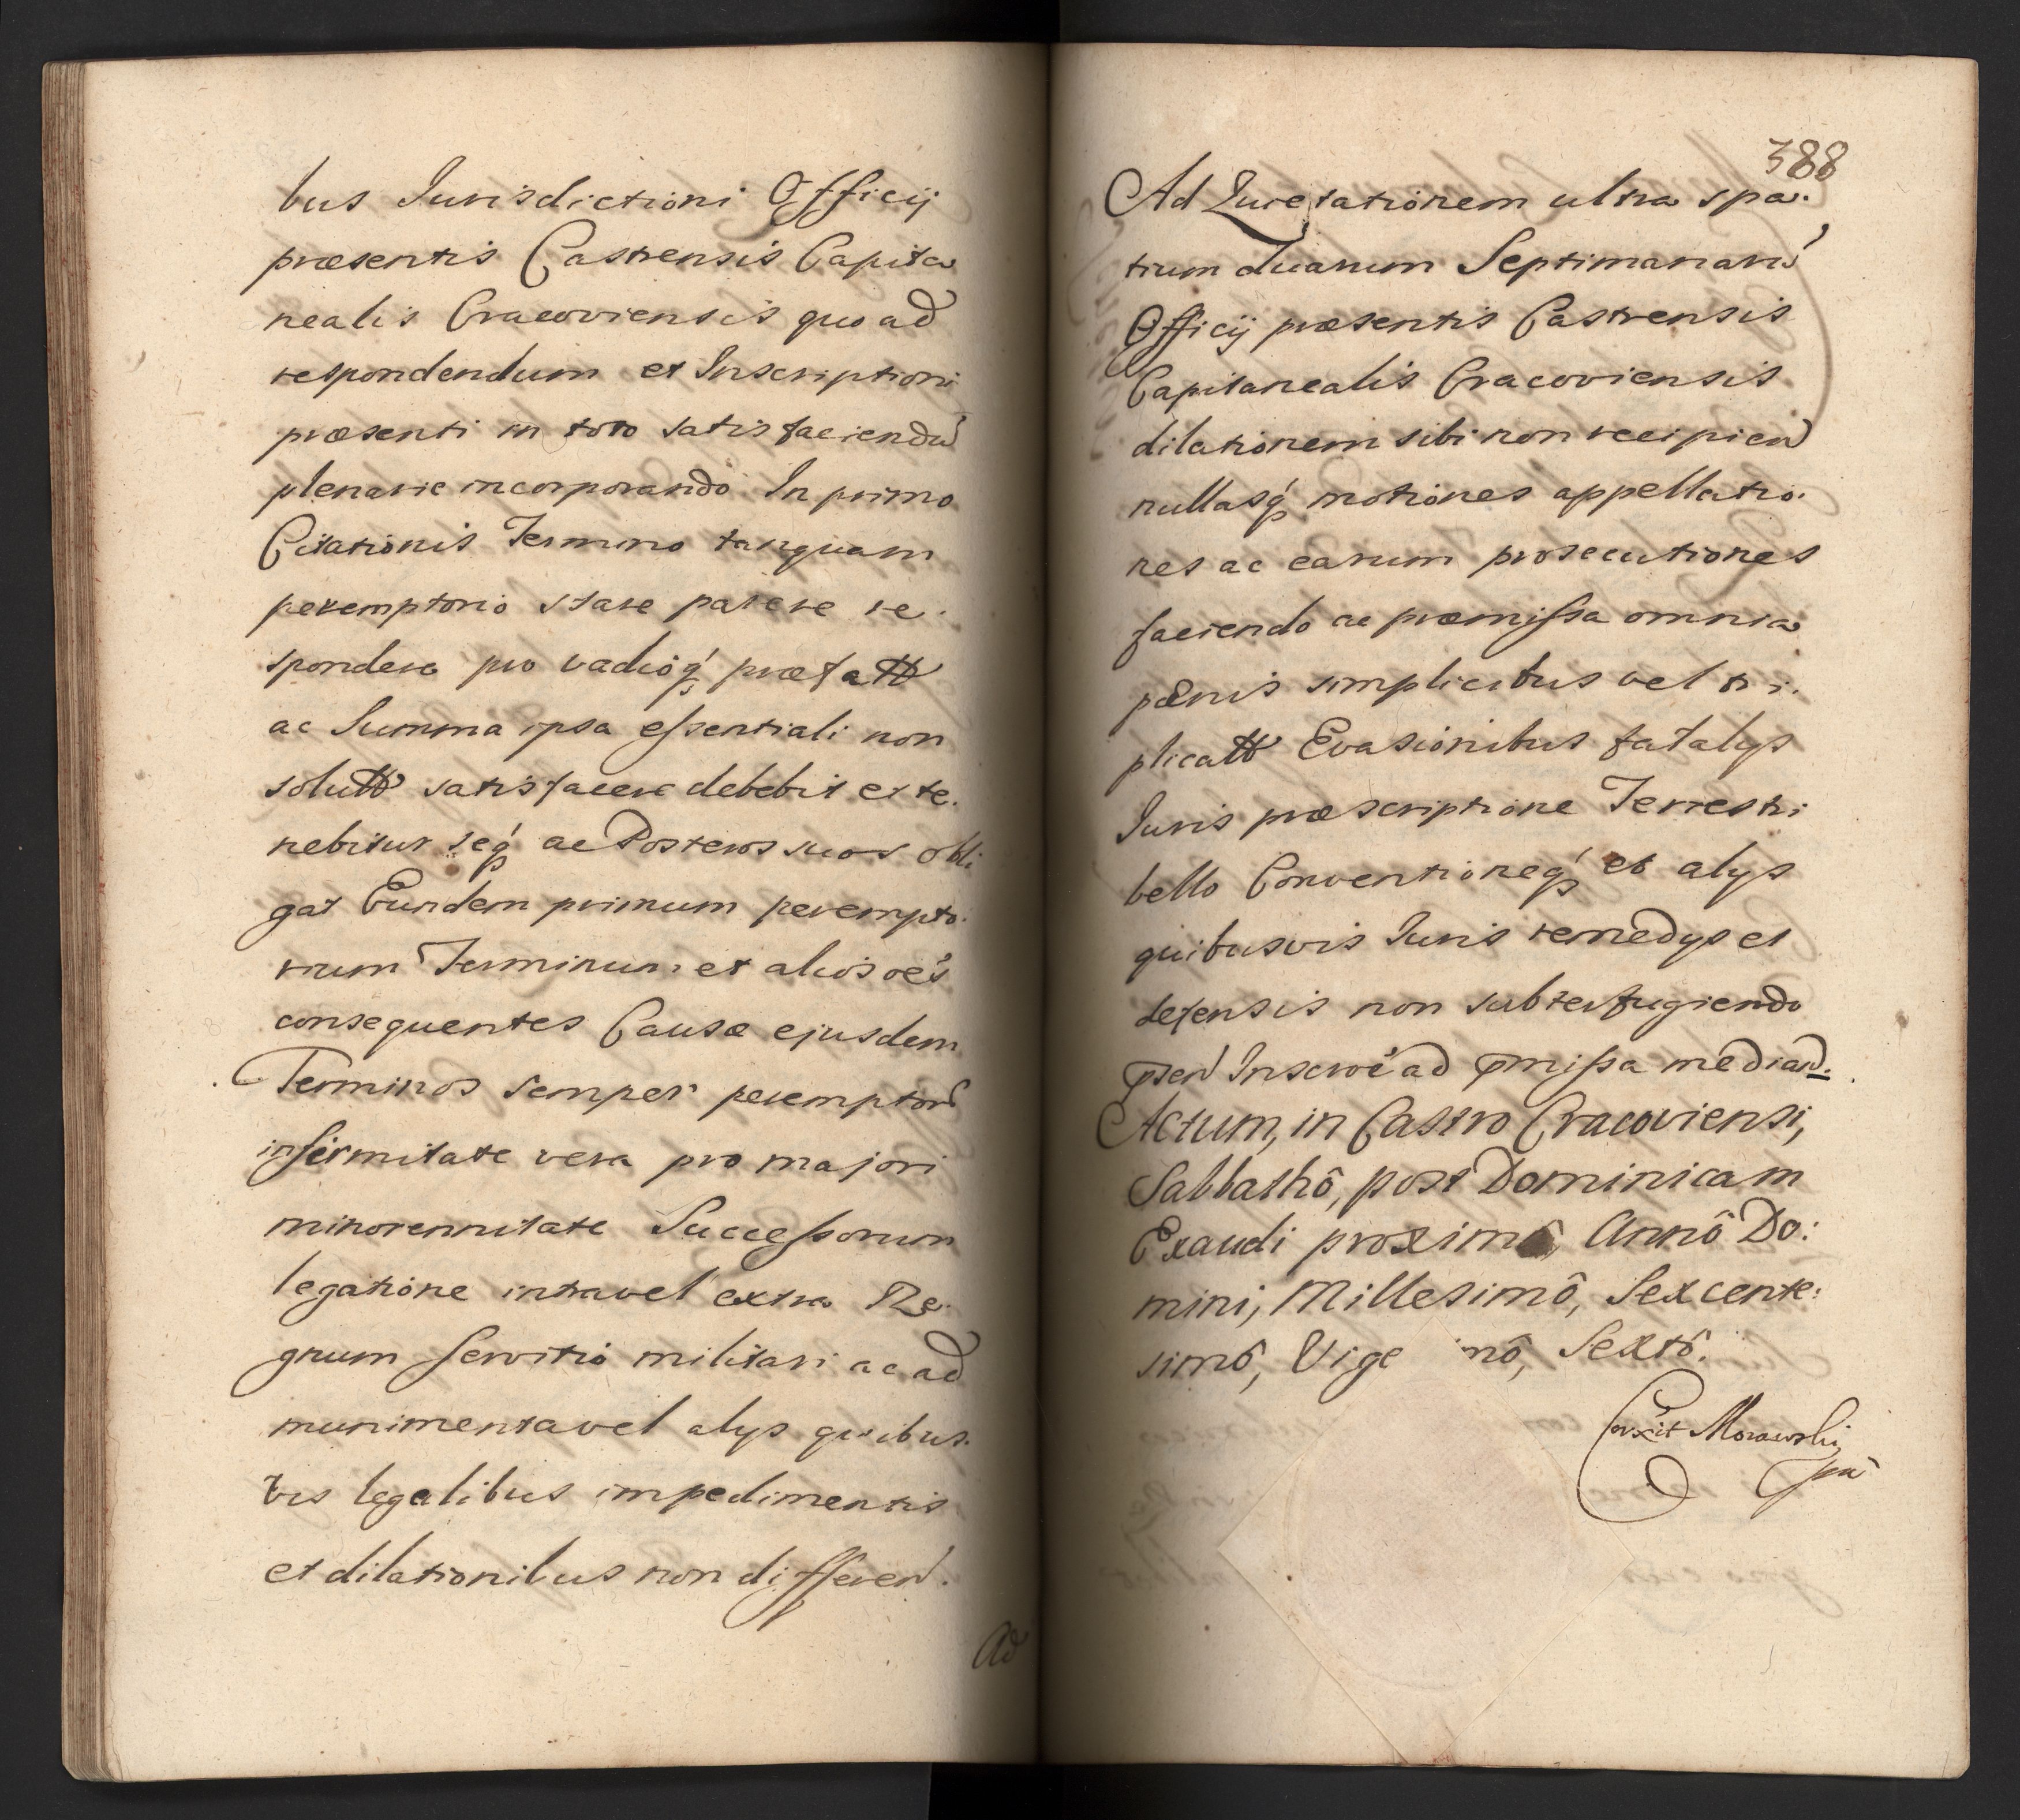 bus Jurisdictioni Officij
præsentis Castrensis Capita
nealis Cracoviensis quo ad
respondendum et Inscriptioni
præsenti in toto satisfaciendũ
plenarie incorporando In primo
Citationis Termino tanquam
peremptorio stare parere re.
spondere pro vadioq́ præfatt
ac Summa ipsa essentiali non
solutt satisfacere debebit et te.
nebitur seq́ ac Posteros suos obli
gat Eundem primum perempto.
rium Terminum et alios oẽs
consequentes Causæ ejusdem
Terminos semper peremptor
infirmitate vera pro majori
minorennitate Successorum
legatione intra vel extra Re.
gnum servitio militari ac ad
munimenta vel alys quibus.
vis legalibus impedimentis
et dilationibus non differen.
Ad
388
Ad Quietationem ultra spa.
tium duarum Septimanarũ
Officij præsentis Castrensis
Capitanealis Cracoviensis
dilationem sibi non recipien
nullasq́ motiones appellatio.
nes ac earum prosecutiones
faciendo ac præmissa omnia
pænis simplicibus vel tri.
plicatt Evasionibus fatalys
Juris præscriptione Terrestri
bello Conventioneq́ et alys
quibusvis Juris remedys et
defensis non subterfugiendo
pñsen Inscrõe ad pmissa median.
Actum, in Castro Cracoviensi,
Sabbathô, post Dominicam
Exaudi proximô, Annô Do:
mini, Millesimô, Sexcente:
simô, Vige imô, Sextô.
Corxit Morawski
mp